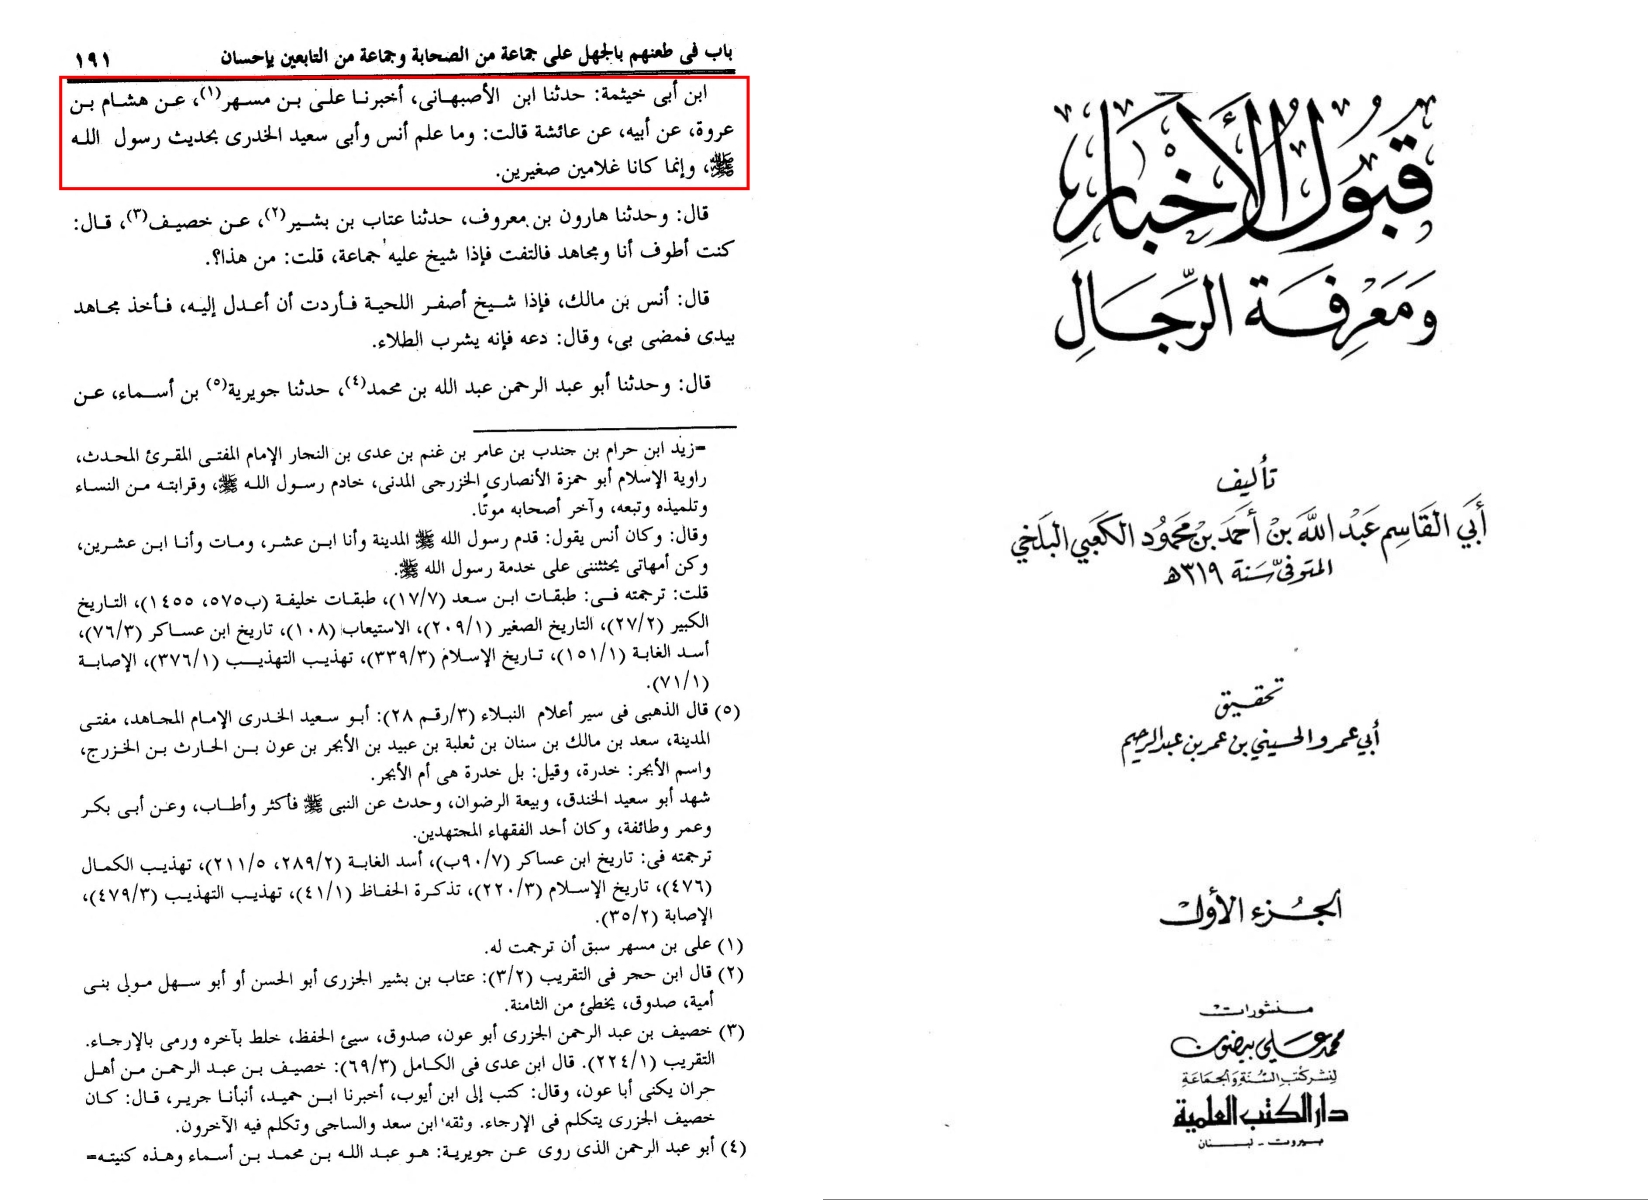 باب فى طعنهم بالجهل على جماعة من الصحابة وجماعة من التابعين بإحسان ١٩١
ابن أبى خيثمة: حدثنا ابن الأصبهانى، أخبرنا على بن مسهر(١)، عن هشام بن
عروة، عن أبيه، عن عائشة قالت: وما علم أنس وأبى سعيد الخدرى بحديث رسول الله
ﷺ، وإنما كانا غلامين صغيرين.
قال: وحدثنا هارون بن معروف، حدثنا عتاب بن بشير(٢)، عن خصيف(٣)، قال:
كنت أطوف أنا ومجاهد فالتفت فإذا شيخ عليه جماعة، قلت: من هذا؟.
قال: أنس بن مالك، فإذا شيخ أصفر اللحية فأردت أن أعدل إليه، فأخذ مجاهد
بيدى فمضى بى، وقال: دعه فإنه يشرب الطلاء.
قال: وحدثنا أبو عبد الرحمن عبد الله بن محمد(٤)، حدثنا جويرية(٥) بن أسماء، عن
=زيد ابن حرام بن جندب بن عامر بن غنم بن عدى بن النجار الإمام المفتى المقرئ المحدث،
راوية الإسلام أبو حمزة الأنصارى الخزرجى المدنى، خادم رسول الله ﷺ، وقرابته من النساء
وتلميذه وتبعه، وآخر أصحابه موتًا.
وقال: وكان أنس يقول: قدم رسول الله ﷺ المدينة وأنا ابن عشر، ومات وأنا ابن عشرين،
وكن أمهاتى يحثثننى على خدمة رسول الله ﷺ.
قلت: ترجمته فى: طبقات ابن سعد (١٧/٧)، طبقات خليفة (ب٥٧٥، ١٤٥٥)، التاريخ
الكبير (٢٧/٢)، التاريخ الصغير (٢٠٩/١)، الاستيعاب (١٠٨)، تاريخ ابن عساكر (٧٦/٣)،
أسد الغابة (١٥١/١)، تاريخ الإسلام (٣٣٩/٣)، تهذيب التهذيب (٣٧٦/١)، الإصابة
(٧١/١).
(٥) قال الذهبى فى سير أعلام النبلاء (٣/رقم ٢٨): أبو سعيد الخدرى الإمام المجاهد، مفتى
المدينة، سعد بن مالك بن سنان بن ثعلبة بن عبيد بن الأبجر بن عون بن الحارث بن الخزرج،
واسم الأبجر: خدرة، وقيل: بل خدرة هى أم الأبجر.
شهد أبو سعيد الخندق، وبيعة الرضوان، وحدث عن النبى ﷺ فأكثر وأطاب، وعن أبى بكر
وعمر وطائفة، وكان أحد الفقهاء المجتهدين.
ترجمته فى: تاريخ ابن عساكر (٩٠/٧ب)، أسد الغابة (٢٨٩/٢، ٢١١/٥)، تهذيب الكمال
(٤٧٦)، تاريخ الإسلام (٢٢٠/٣)، تذكرة الحفاظ (٤١/١)، تهذيب التهذيب (٤٧٩/٣)،
الإصابة (٣٥/٢).
(١) على بن مسهر سبق أن ترجمت له.
(٢) قال ابن حجر فى التقريب (٣/٢): عتاب بن بشير الجزرى أبو الحسن أو أبو سهل مولى بنى
أمية، صدوق، يخطئ من الثامنة.
(٣) خصيف بن عبد الرحمن الجزرى أبو عون، صدوق، سيئ الحفظ، خلط بآخره ورمى بالإرجاء.
التقريب (٢٢٤/١). قال ابن عدى فى الكامل (٦٩/٣): خصيف بن عبد الرحمن من أهل
حران يكنى أبا عون، وقال: كتب إلى ابن أيوب، أخبرنا ابن حميد، أنبأنا جرير، قال: كان
خصيف الجزرى يتكلم فى الإرجاء. وثقه ابن سعد والساجى وتكلم فيه الآخرون.
(٤) أبو عبد الرحمن الذى روى عن جويرية: هو عبد الله بن محمد بن أسماء وهذه كنيته=
قبول الأخبار
ومعرفة الرجال
تأليف
أبي القاسم عبد الله بن أحمد بن محمود الكعبي البلخي
المتوفى سنة ٣١٩ هـ
تحقيق
أبي عمرو الحسيني بن عمر بن عبد الرحيم
الجزء الأول
منشورات
محمد علي بيضون
لنشر كتب السنة والجماعة
دار الكتب العلمية
بيروت - لبنان